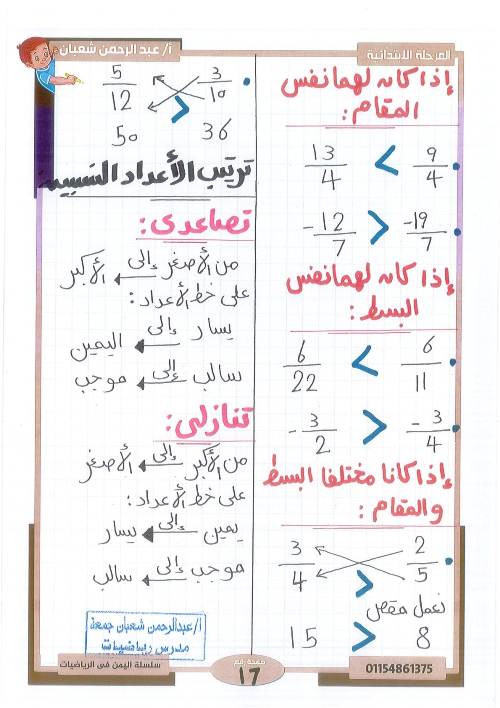 المرحلة الابتدائية
أ/ عبد الرحمن شعبان
إذا كان لهما نفس
المقام :
13/4 < 9/4
-12/7 > -19/7
إذا كان لهما نفس
البسط :
6/22 < 6/11
-3/2 > -3/4
إذا كانا مختلفا البسط
والمقام :
3/4 > 2/5
نعمل مقص
15 > 8
5/12 > 3/10
50 36
ترتيب الأعداد النسبية
تصاعدى :
من الأصغر إلى الأكبر
على خط الأعداد :
يسار إلى اليمين
سالب إلى موجب
تنازلى :
من الأكبر إلى الأصغر
على خط الأعداد :
يمين إلى يسار
موجب إلى سالب
أ/ عبدالرحمن شعبان جمعة
مدرس رياضيات
01154861375
صفحة رقم
17
سلسلة اليمن فى الرياضيات